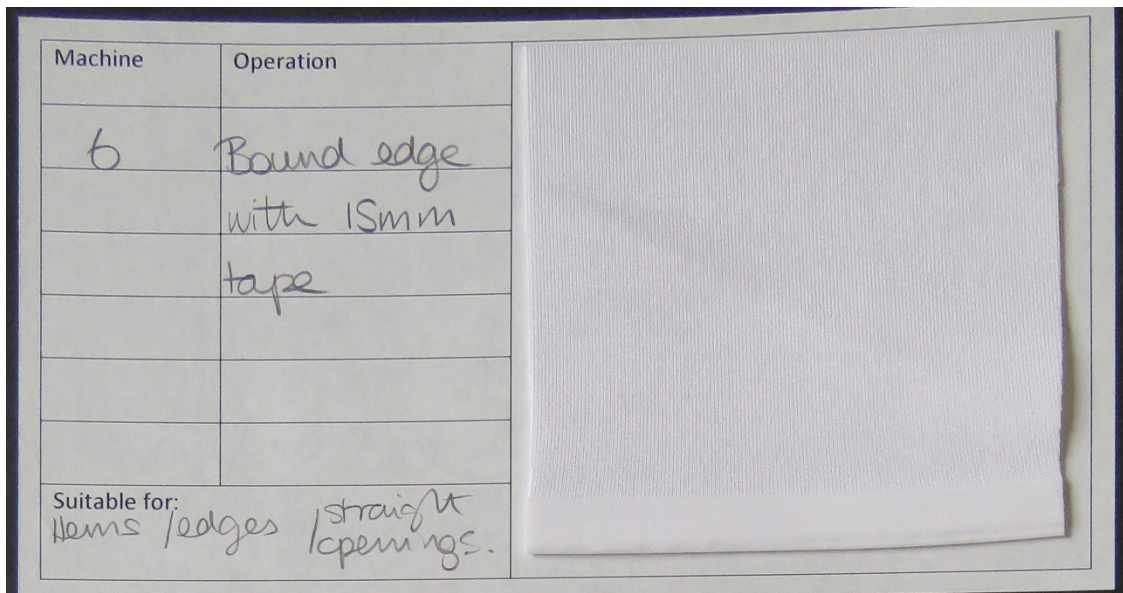 Machine Operation
6 Bound edge
with 15mm
tape
Suitable for:
Hems /edges /straight
/openings.